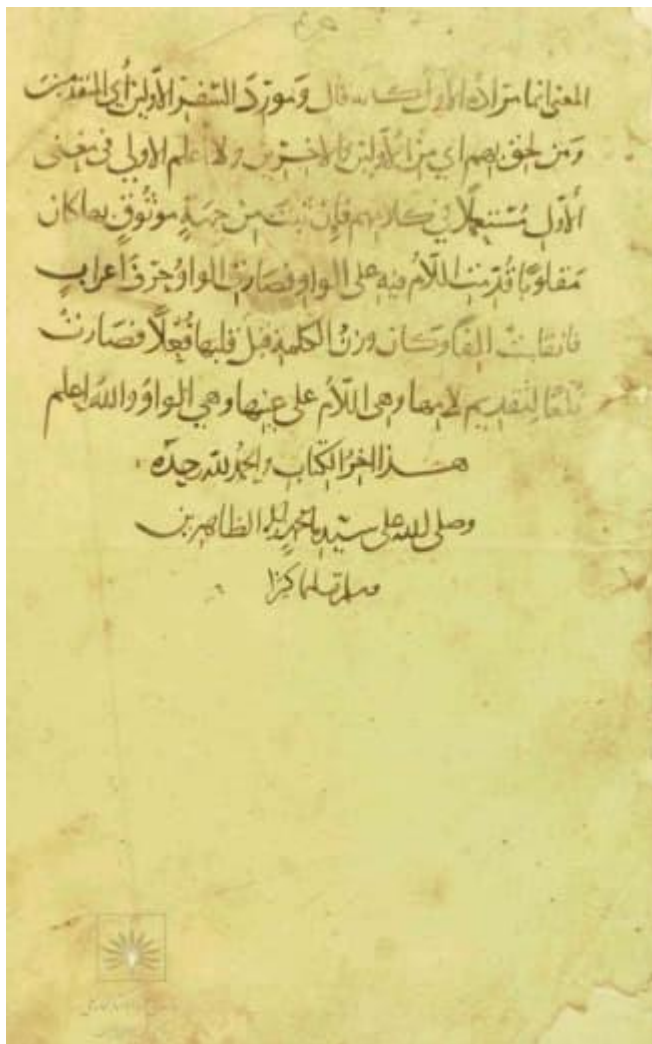 المعنى انما مراده الاول كانه قال ومورد السَّفْرِ الاولين أي المتقدمين
ومن لحق بهم اي من الأولين والاخرين ولا أعلم الاولى في معنى
الأول مُسْتعملًا في كلامهم فإن ثبت من جهةٍ موثُوقٍ بها كان
مقلوبًا قُدّمت اللاّم فيه على الواو فصارت الواوُ حرفَ اعرابٍ
فانقلبتْ الفًا وكان وزنُ الكلمة قبل قلبها فُعْلًا فصارتْ
لتقديم لامها وهي اللاّم على عينها وهي الواوُ والله اعلم
هذا اخرُ الكتاب والحمد لله وحده
وصلى الله على سيدنا محمدٍ وآله الطاهرين
وسلم تسليما كثيرا